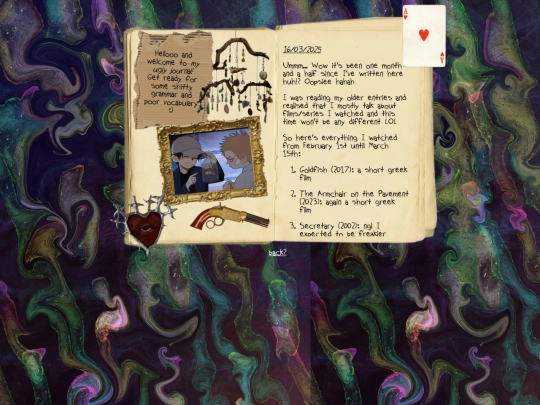 Hellooo and
welcome to my
ugly journal!
Get ready for
some shitty
grammar and
poor vocabulary
:)
16/03/2025
Ummm... Wow it's been one month
and a half since I've written here
huh!? Oopsiee hahah
I was reading my older entries and
realised that I mostly talk about
films/series I watched and this
time won't be any different LOL
So here's everything I watched
from February 1st until March
15th:
1. Goldfish (2017): a short greek
film
2. The Armchair on the Pavement
(2023): again a short greek
film
3. Secretary (2002): ngl I
expected to be freakier
A
A
back?